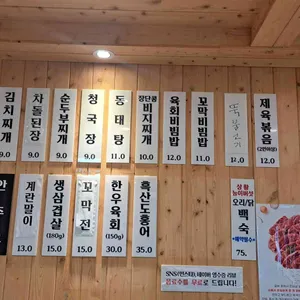 김치찌개 9.0
차돌된장 9.0
순두부찌개 9.0
청국장 9.0
동태탕 11.0
장단콩 비지찌개 10.0
육회비빔밥 12.0
꼬막비빔밥 11.0
뚝불고기 12.0
제육볶음 (2인이상) 12.0
계란말이 13.0
생삼겹살 (180g) 15.0
꼬막전 15.0
한우육회 (150g) 30.0
흑산도홍어 35.0
상황
능이버섯
오리/닭
백숙
*예약필수*
75.
음료수를 무료로 드립니다!